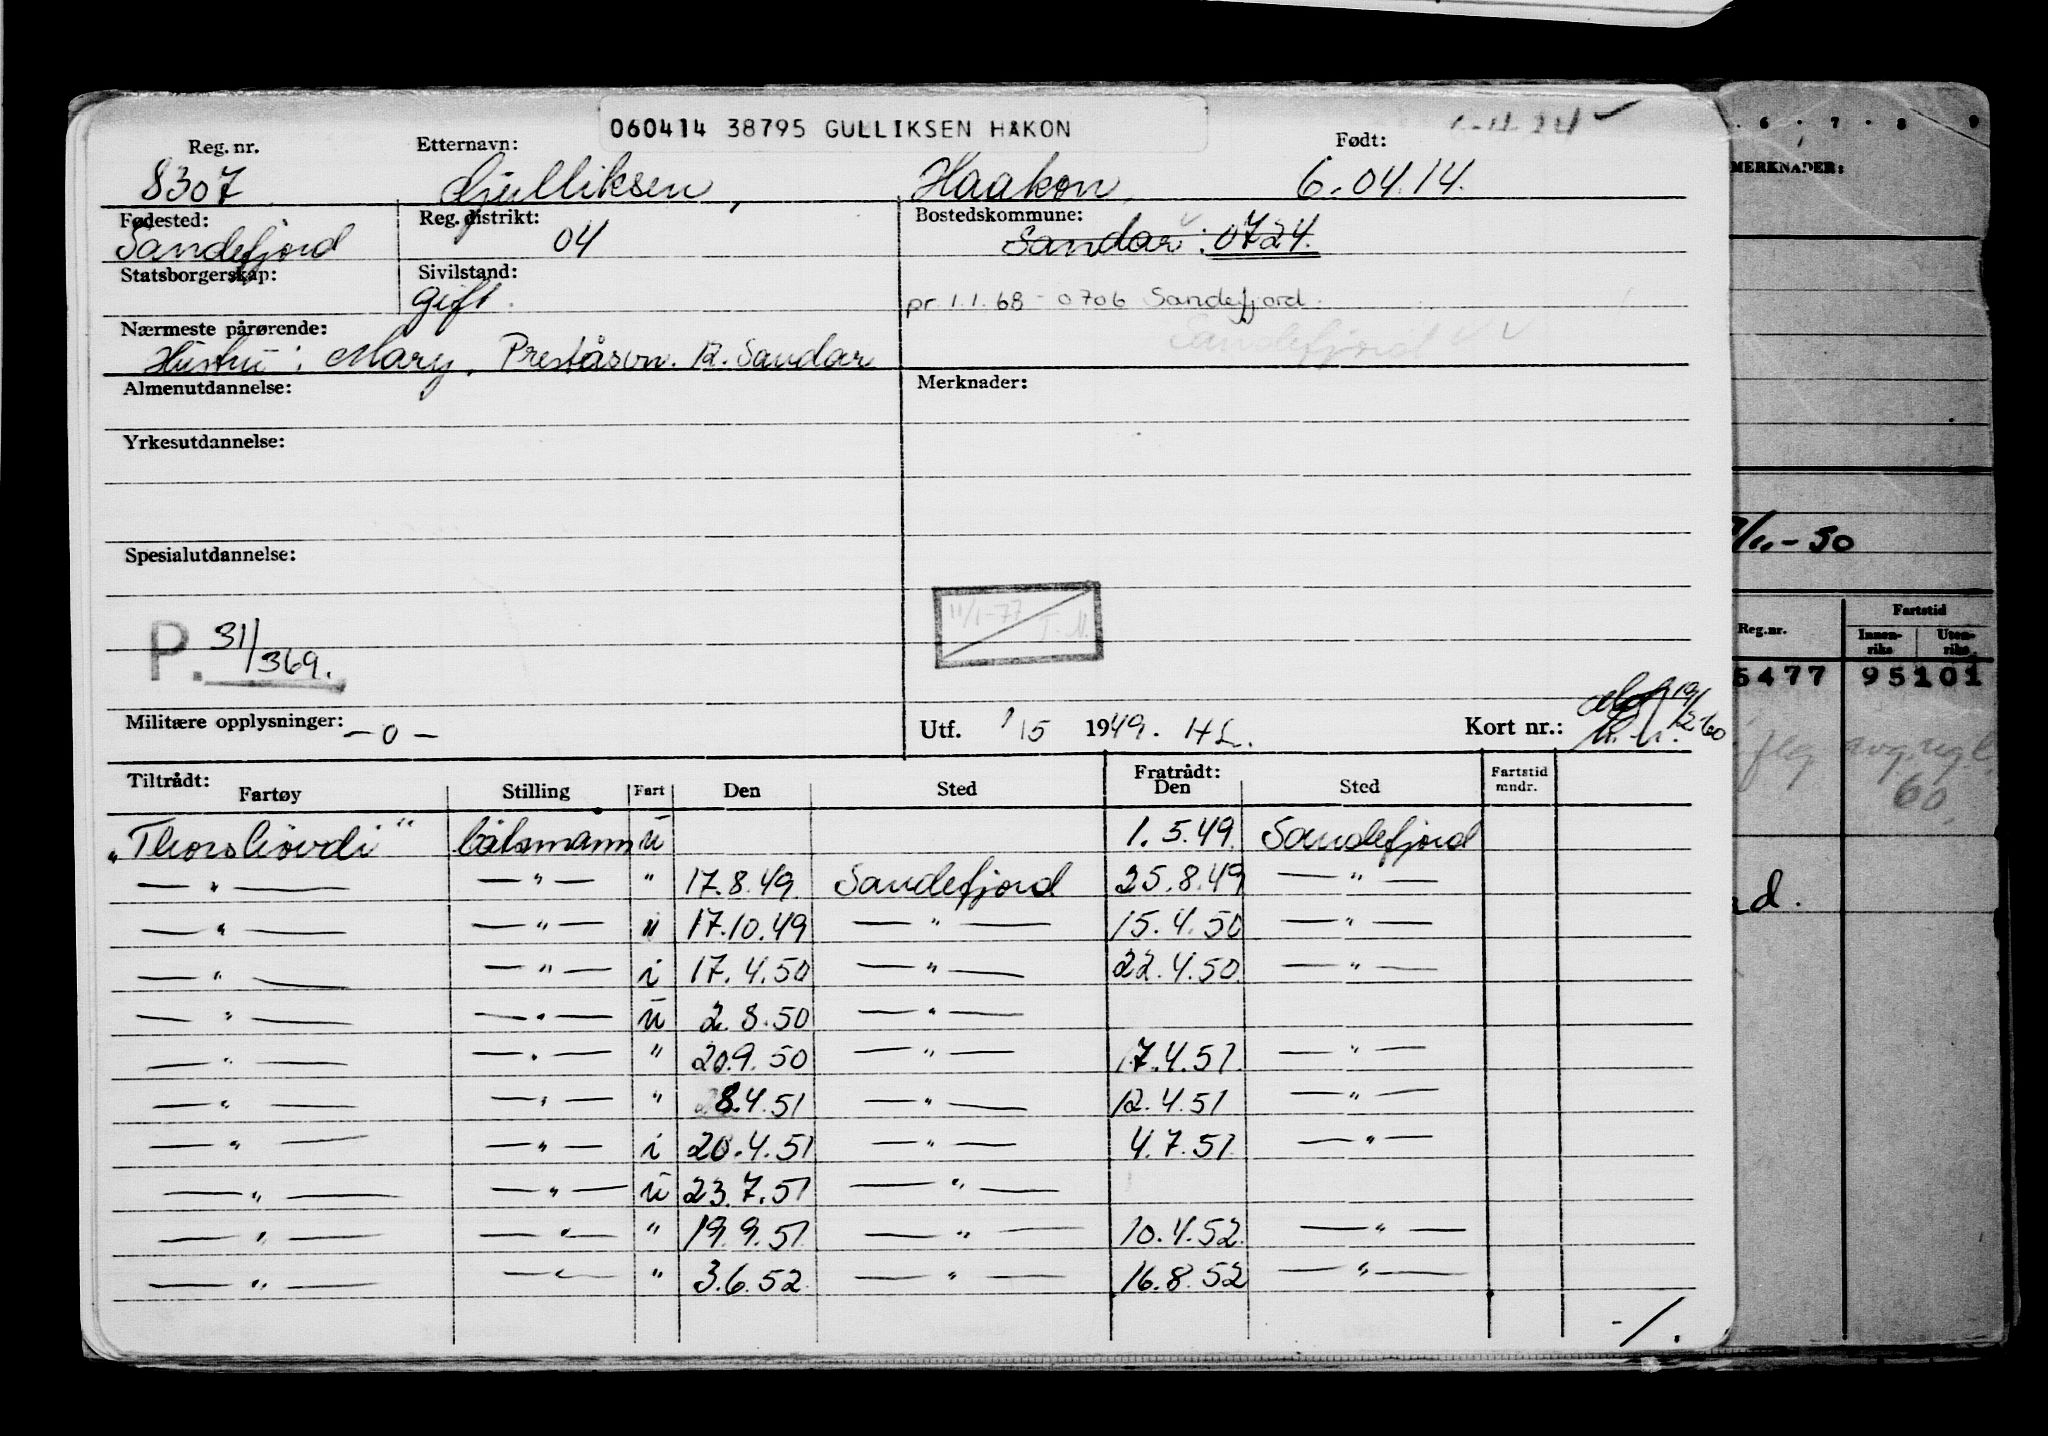 060414 38795 GULLIKSEN HAKON
Reg. nr. Etternavn: Født:
8307 Gulliksen, Haakon, 6.04.14.
Fødested: Reg. distrikt: Bostedskommune:
Sandefjord 04 Sandar: 0724.
Statsborgerskap: Sivilstand:
gift. pr. 1.1.68 - 0706 Sandefjord.
Sandefjord
Nærmeste pårørende:
Hustru: Mary, Preståsvn. 12. Sandar
Almenutdannelse: Merknader:
Yrkesutdannelse:
Spesialutdannelse:
11/1-77 T.M.
P. 31/369.
Militære opplysninger: -0- Utf. 1/5 1949. HL. Kort nr.: 19/2-60
Tiltrådt: Fratrådt:
Fartøy Stilling Fart Den Sted Den Sted Fartstid mndr.
"Thorshövdi" båtsmann u 1.5.49. Sandefjord
— " — — " — " 17.8.49. Sandefjord 25.8.49 — " —
— " — — " — " 17.10.49 — " — 15.4.50 — " —
— " — — " — i 17.4.50 — " — 22.4.50. — " —
— " — — " — u 2.8.50 — " —
— " — — " — " 20.9.50 — " — 17.4.51. — " —
— " — — " — " 28.4.51 — " — 12.4.51 — " —
— " — — " — i 20.4.51 — " — 4.7.51. — " —
— " — — " — u 23.7.51 — " —
— " — — " — " 19.9.51. — " — 10.4.52. — " —
— " — — " — " 3.6.52. — " — 16.8.52 — " —
-/.
6 · 7 · 8 9
MERKNADER:
-50
Fartstid
Reg.nr. Innenriks Utenriks
5477 95101
avg. regl.
60.
d.